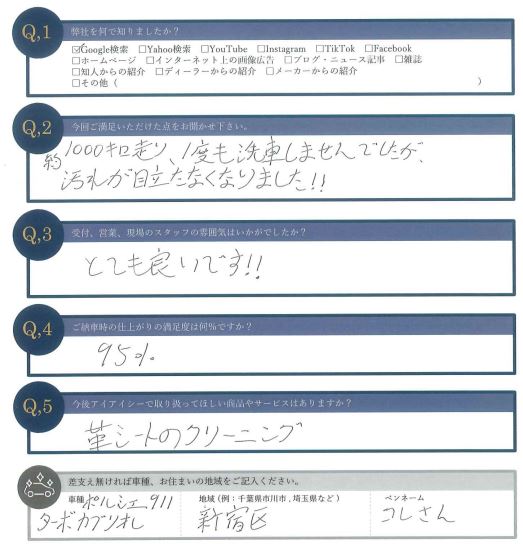 Q,1 弊社を何で知りましたか？
☑Google検索 □Yahoo検索 □YouTube □Instagram □TikTok □Facebook
□ホームページ □インターネット上の画像広告 □ブログ・ニュース記事 □雑誌
□知人からの紹介 □ディーラーからの紹介 □メーカーからの紹介
□その他（ ）
Q,2 今回ご満足いただけた点をお聞かせ下さい。
約1000キロ走り、1度も洗車しませんでしたが、
汚れが目立たなくなりました!!
Q,3 受付、営業、現場のスタッフの雰囲気はいかがでしたか？
とても良いです!!
Q,4 ご納車時の仕上がりの満足度は何%ですか？
95%
Q,5 今後アイアイシーで取り扱ってほしい商品やサービスはありますか？
革シートのクリーニング
差支え無ければ車種、お住まいの地域をご記入ください。
車種 ポルシェ 911 地域（例：千葉県市川市、埼玉県など） ペンネーム
ターボカブリオレ 新宿区 コレさん